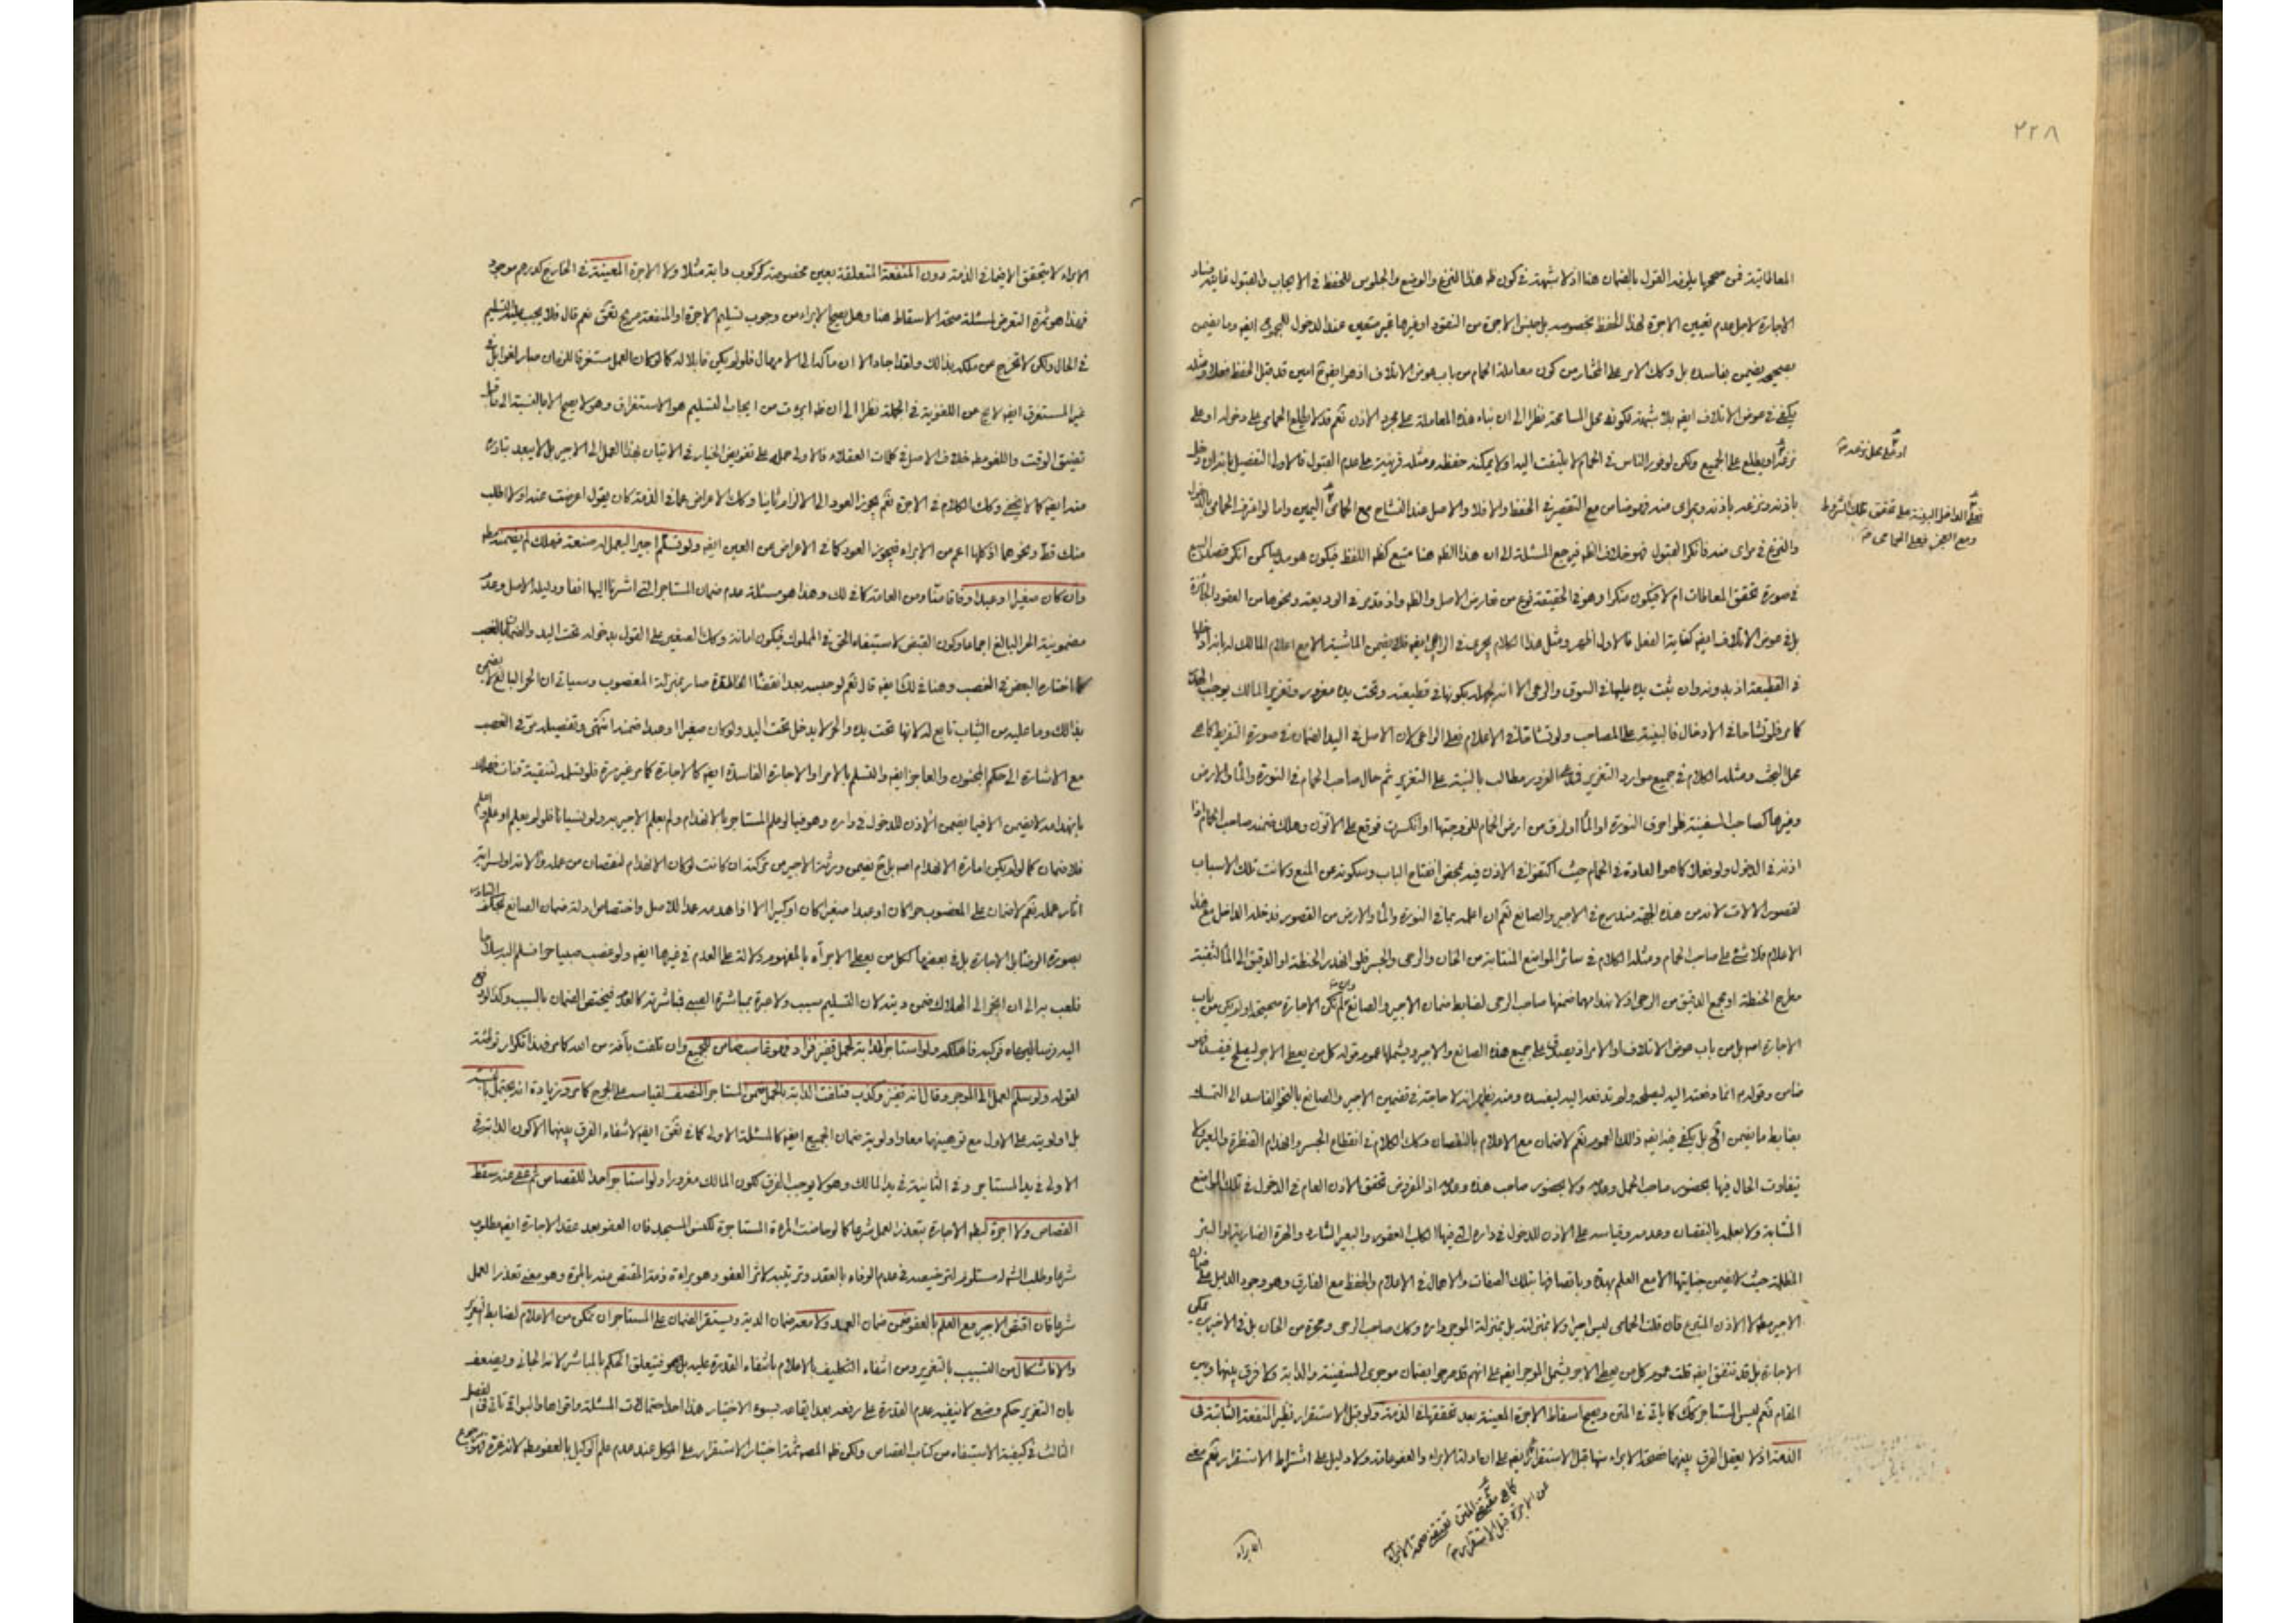 ٢٢٨
المعاطاتية فمن صححها يلزمه القول بالضمان هنا اذ لا شبهة في كون هذا النزع والوضع والجلوس للحفظ في الايجاب والقبول غايته فساد
الاجارة لاجل عدم تعيين الاجرة لهذا الحفظ بخصوصه بل جنس الاجرة من النقود او غيرها غير متعين عند الدخول ايضه وما يضمن
بصحيحه يضمن بفاسده بل وكك الامر على المختار من كون معاملة الحمام من باب عوض الاتلاف اذ هو ايضه امين قد قبل الحفظ فعلا ومثله
يكفي في عوض الاتلاف ايضه بلا شبهة لكونه محل المسامحة نظرا الى ان بناء هذه المعاملة على مجرد الاذن نعم قد لا يطلع الحمامي على دخوله او على
نزعه او يطلع على الجميع ولكن لوفور الناس في الحمام لا يلتفت اليه او لا يمكنه حفظه ومثله قرينة على عدم القبول فالاولى التفصيل بانه ان دخل
باذنه ونزعه باذنه وبمراى منه فهو ضامن مع التقصير في الحفظ والا فلا والاصل عند التشاح مع الحمامي اليمين واما لو اعترف الحمامي بالدخول
والنزع في مراى منه فانكر القبول فهو خلاف الظه فيرجع المسئلة الى ان هذا الظه هنا متبع كظه اللفظ فيكون هو مدعيا كمن انكر قصد البيع
في صورة تحقق المعاطات ام لا فيكون منكرا وهو في الحقيقة نوع من تعارض الاصل والظه واذ قد مر في الوديعة ونحوها من العقود الجائزة
بل في عوض الاتلاف ايضه كفاية الفعل فالاول اظهر ومثل هذا الكلام يجرى في الراعي ايضه فلا يضمن الماشية الا مع اعلام المالك له بانه ادخلها
في القطيعة اذ بدونه وان ثبت يده عليها في السوق والرعي الا انه لجهله بكونها في قطيعته وتحت يده مغرور وتغرير المالك يوجب
كما مر فلو تشاحا في الادخال فالبينة على المصاحب ولو تشاحا في الاعلام فعلى الراعي لان الاصل في اليد الضمان في صورة التفريط كما هو
محل البحث ومثله الكلام في جميع موارد التغرير فمدعى الغرور مطالب بالبينة على التغرير ثم حال صاحب الحمام في النورة والماء والارض
وغيرها كصاحب السفينة فلو احرق النورة او الماء او زلق من ارض الحمام للزوجتها او انكسرت فوقع على الاتون وهلك ضمنه صاحب الحمام اذا
اذن في الدخول ولو فعلا كما هو العادة في الحمام حيث اكتفوا في الاذن فيه بمحض انفتاح الباب وسكوته عن المنع وكانت تلك الاسباب
لقصور الالات لانه من هذه الجهة مندرج في الاجير والصانع نعم ان اعلمه بما في النورة والماء والارض من القصور فدخله الداخل مع هذا
الاعلام فلا شئ على صاحب الحمام ومثله الكلام في سائر المواضع المنتابة من الخان والرحى والجسر فلو انحدر الحنطة او الدقيق الى الماء لثقبة
مطرح الحنطة او مجمع الدقيق من الرحى او لانهدامهما ضمنها صاحب الرحى لضابط ضمان الاجير والصانع وان لم تكن الاجارة صحيحة او لم يكن من باب
الاجارة اصه بل من باب عوض الاتلاف او الامر اذ يصدق على جميع هذه الصانع والاجير ويشملها عموم قوله كل من يعطى الاجر ليصلح فيفسد فهو
ضامن وقوله م انما دفعته اليه ليصلحه ولم تدفعه اليه ليفسده ومنه يظهر انه لا حاجة في تضمين الاجير والصانع بالنحو الفاسد الى التمسك
بضابط ما يضمن الخ بل يكفى فيه ايضه ذلك العموم نعم لا ضمان مع الاعلام بالنقصان وكك الكلام في انقطاع الجسر وانهدام القنطرة والمعبر ولا
يتفاوت الحال فيها بحضور صاحب الحمل وعدمه ولا بحضور صاحب هذه وعدمه اذ المفروض تحقق الاذن العام في الدخول في تلك المواضع
المنتابة ولا بعلمه بالنقصان وعدمه وقياسه على الاذن للدخول في داره التي فيها الكلب العقور والبعير الشارد والهرة الضارية او البئر
المظلمة حيث لا يضمن جنايتها الا مع العلم بهذه وباتصافها بتلك الصفات والاهمال في الاعلام والحفظ مع الفارق وهو وجود الدليل على ضمان
الاجير مطه لا الاذن المتبرع فان قلت الحمامي ليس اجيرا ولا بمنزلته بل بمنزلة الموجر داره وكك صاحب الرحى وحجرة من الخان بل في الاخير يمكن
الاجارة بل قد تتفق ايضه قلت عموم كل من يعطى الاجر يشمل الموجر ايضه على انهم قد صرحوا بضمان موجرى السفينة والدابة ولا فرق بينها وبين
المقام نعم ليس المستاجر كك كما ياتى في المتن ويصح اسقاط الاجرة المعينة بعد تحققها في الذمة ولو قبل الاستقرار نظير المنفعة الثابتة في
الذمة اذ لا يعقل الفرق بينهما فصحة الابراء منها قبل الاستقرار ايضه على ان ادلة الابراء والعفو عامة ولا دليل على اشتراط الاستقرار نعم معنى
او على محل نزعه
فعلى الداخل البينة على تحقق تلك الشروط
ومع العجز فعلى الحمامي
كما هو مقتضى المتن تقتضي صحة الابراء
عن الاجرة قبل الاستقرار
الابراء
الابراء لا يتحقق الا فيما في الذمة دون المنفعة المتعلقة بعين مخصوصة كركوب دابة مثلا ولا الاجرة المعينة في الخارج كدرهم موجود
فهذا هو ثمرة التعرض لمسئلة صحة الاسقاط هنا وهل يصح الابراء من وجوب تسليم الاجرة او المنفعة صريح نعم قال فلا يجب عليه التسليم
في الحال ولكن لا تخرج عن ملكه بذالك ولقد اجاد الا ان مآكده الى الامهال فلو لم يكن قابلا له كما لو كان العمل مستغرقا للزمان صار لغوا بل في
غير المستغرق ايضه لا يخ عن اللغوية في الجملة نظرا الى ان ظه ابرءت من ايجاب التسليم هو الاستغراق وهو لا يصح الا بالنسبة الى ما قبل
تضيق الوقت واللغو مطه خلاف الاصل في كلمات العقلاء فالاولى حمله على تفويض الخيار في الاتيان بهذا العمل الى الاجير بل لا يبعد تبادره
منه ايضه كما لا يخفى وكك الكلام في الاجرة نعم يجوز العود الى الالزام ثانيا وكك الاعراض عما في الذمة كان يقول اعرضت عنه او لا اطلب
منك قط ونحوهما اذ كلها اعم من الابراء فيجوز العود كما في الاعراض عن العين ايضه ولو تسلم اجيرا ليعمل له صنعة فهلك لم يضمنه مطه
وان كان صغيرا او عبدا وفاقا منا ومن العامة كما في لك وهذا هو مسئلة عدم ضمان المستاجر التي اشرنا اليها انفا ودليله الاصل وعدم
مضمونية الحر البالغ اجماعا وكون القبض لاستيفاء الحق في المملوك فيكون امانة وكك الصغير على القول بدخوله تحت اليد والضمان بالغصب
كما اختاره البعض في الغصب وهنا في لك ايضه قال نعم لو حبسه بعد انقضاء المدة صار بمنزلة المغصوب وسياتى ان الحر البالغ لا يضمن
بذالك وما عليه من الثياب تابع له لانها تحت يده والحر لا يدخل تحت اليد ولو كان صغيرا او عبدا ضمنه انتهى وتفصيله مر في الغصب
مع الاشارة الى حكم المجنون والعاجز ايضه والتسلم بالامر او الاجارة الفاسدة ايضه كالاجارة كما مر غير مرة فلو تسلمه لتنقية قنات فهلك
بانهدامه لا يضمن الا فيما يضمن الآذن للدخول في داره وهو فيما لو علم المستاجر بالانهدام ولم يعلم الاجير به ولو نسيانا فلو لم يعلم او علم واعلم
فلا ضمان كما لو لم يكن امارة الانهدام اصه بل ح يضمن ورثة الاجير من تركته ان كانت لو كان الانهدام لنقصان من عمله والاتداولسراية
اثار عمله نعم لا ضمان على المغصوب حرا كان او عبدا صغيرا كان او كبيرا الا اذا هدمه عمدا للاصل واختصاص ادلة ضمان الصانع
بصورة الرضا بل الاجارة بل في بعضها ككل من يعطى الاجر آه بالمفهوم دلالة على العدم في غيرها ايضه ولو غصب صبيا حرا فسلم اليه سلاحا
فلعب به الى ان انجر الى الهلاك ضمن ديته لان التسليم سبب ولا عبرة بمباشرة الصبي فمباشرته كالعدم فيختص الضمان بالسبب وكذا لو دفع
اليه فركبه فاهلكه ولو استاجر الدابة لحمل قفيز فزاد فهو غاصب ضامن للجميع وان تلفت بآفة من الله كما مر فهذا تكرار توطئة
لقوله ولو سلم الحمل الى الموجر وقال انه قفيز وكذب فتلفت الدابة بالحمل ضمن المستاجر النصف لقياسه على الجرح كما مر وزيادة انه يحتمل بالنسبة
بل اولويته على الاول مع توهينهما معا واولوية ضمان الجميع ايضه كالمسئلة الاولى كما في ايضه لانتفاء الفرق بينهما الا كون الدابة في
الاولى في يد المستاجر وفي الثانية في يد المالك وهو لا يوجب الفرق لكون المالك مغرورا ولو استاجر احدا للقصاص ثم عفى عنه سقط
القصاص ولا اجرة لبطه الاجارة بتعذر العمل شرعا كما لو حاضت المرءة المستاجرة لكنس المسجد فان العفو بعد عقد الاجارة ايضه مطلوب
شرعا وطلب الشئ مستلزم لترخيصه في عدم الوفاء بالعقد وترتيبه لاثر العفو وهو براءة ذمة المقتص منه بالمرة وهو معنى تعذر العمل
شرعا فان اقتص الاجير مع العلم بالعفو ضمن ضمان العمد ولا معه ضمان الدية ويستقر الضمان على المستاجر ان تمكن من الاعلام لضابط التغرير
والا فاشكال من التسبيب بالتغرير ومن انتفاء التكليف بالاعلام بانتفاء القدرة عليه بل هو فيتعلق الحكم بالمباشر لانه الجانى ويضعف
بان التغرير حكم وضعي لا ينفيه عدم القدرة على رفعه بعد ايقاعه بسوء الاختيار هذا احد احتمالات المسئلة واقواها والبواقى تاتى في الفصل
الثالث في كيفية الاستيفاء من كتاب القصاص ولكن ظه المصه ثمة اختيار الاستقرار على الموكل عند عدم علم الوكيل بالعفو مطه لانه غره فهو